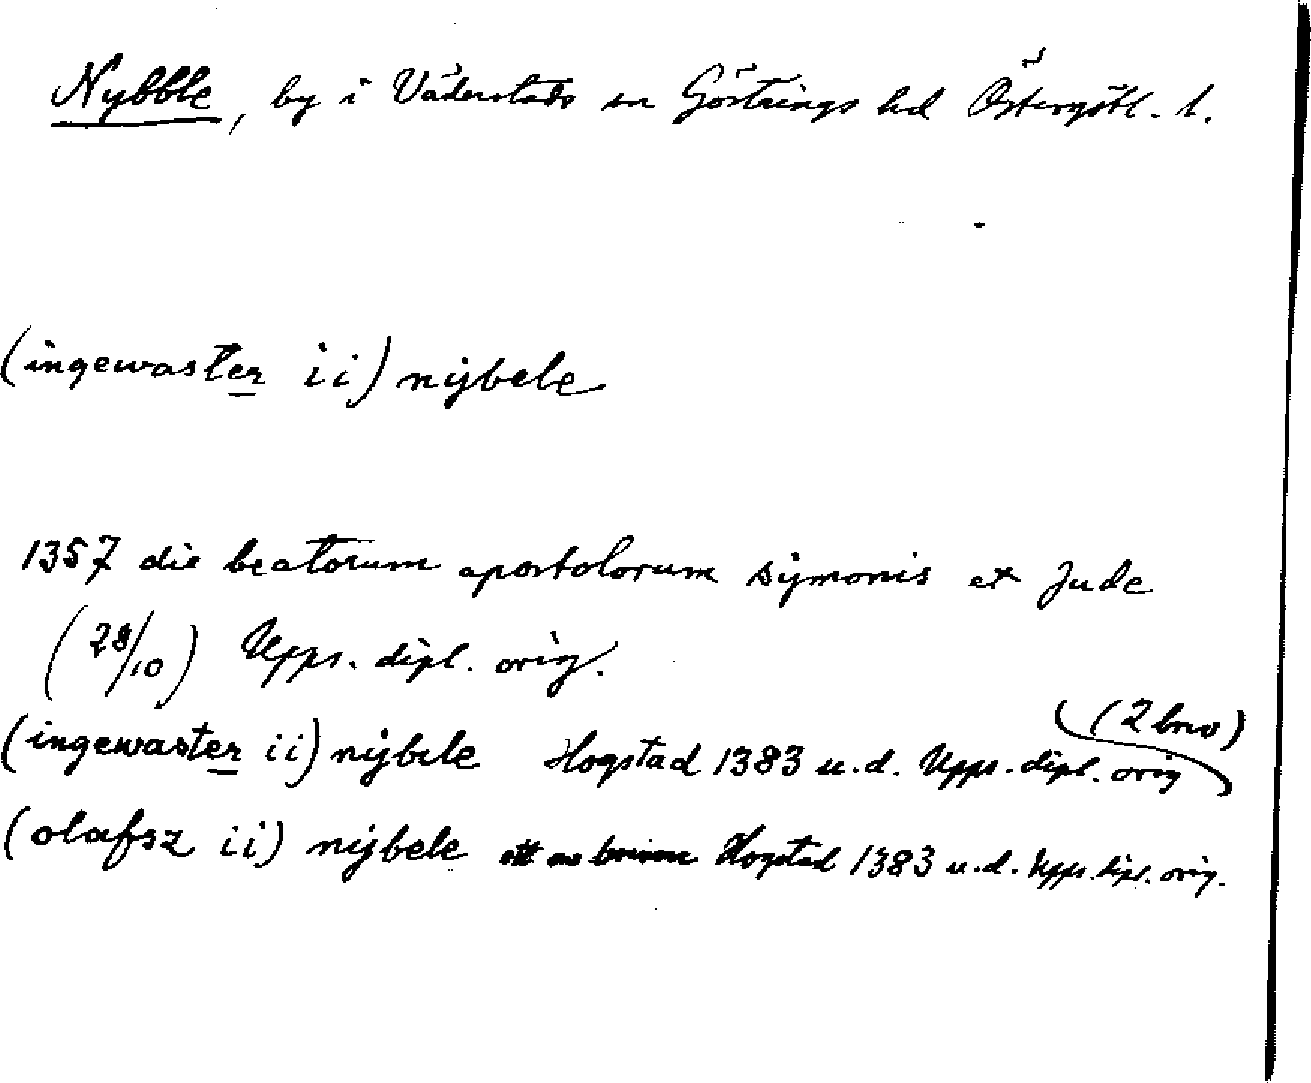 Nybble, by i Väderstads sn Göstrings hd Östergötl. l.
(ingewaster ii) nijbele
1357 die beatorum apostolorum sijmonis et Jude
(28/10) Upps. dipl. orig.
(2 brev)
(ingewaster ii) nijbele Hogstad 1383 u.d. Upps. dipl. orig
(olafsz ii) nijbele ett av breven Hogstad 1383 u.d. Upps. dipl. orig.